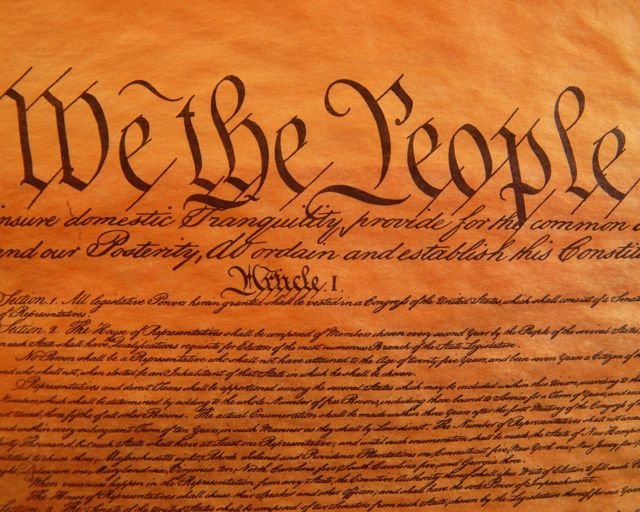 We the People
insure domestic Tranquility, provide for the common
and our Posterity, do ordain and establish this Constitu
Article. I.
Section. 1. All legislative Powers herein granted shall be vested in a Congress of the United States, which shall consist of a Sena
of Representatives.
Section. 2. The House of Representatives shall be composed of Members chosen every second Year by the People of the several States
in each State shall have the Qualifications requisite for Electors of the most numerous Branch of the State Legislature.
No Person shall be a Representative who shall not have attained to the Age of twenty five Years, and been seven Years a Citizen of the
and who shall not, when elected, be an Inhabitant of that State in which he shall be chosen.
Representatives and direct Taxes shall be apportioned among the several States which may be included within this Union, according to the
Numbers, which shall be determined by adding to the whole Number of free Persons, including those bound to Service for a Term of Years, and
not taxed, three fifths of all other Persons. The actual Enumeration shall be made within three Years after the first Meeting of the Congress of
and within every subsequent Term of ten Years, in such Manner as they shall by Law direct. The Number of Representatives shall not
thirty Thousand, but each State shall have at Least one Representative; and until such enumeration shall be made, the State of New Hamps
entitled to chuse three, Massachusetts eight, Rhode Island and Providence Plantations one, Connecticut five, New York six, New Jersey four
eight, Delaware one, Maryland six, Virginia ten, North Carolina five, South Carolina five, and Georgia three.
When vacancies happen in the Representation from any State, the Executive Authority thereof shall issue Writs of Election to fill such
The House of Representatives shall chuse their Speaker and other Officers; and shall have the sole Power of Impeachment.
Section. 3. The Senate of the United States shall be composed of two Senators from each State, chosen by the Legislature thereof for six Years